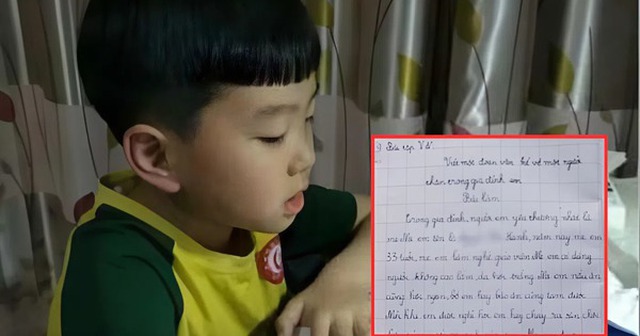 Bài tập Về
Viết một đoạn văn kể về một người
thân trong gia đình em
Bài làm
Trong gia đình, người em yêu thương nhất là
mẹ. Mẹ em tên là Hạnh, năm nay mẹ em
33 tuổi, mẹ em làm nghề giáo viên. Mẹ em có dáng
người không cao lắm, da hơi trắng. Mẹ em nấu ăn
cũng hơi ngon, bố em hay bảo ăn cũng tạm được
Mỗi khi em được nghỉ học em hay chạy ra sân chơi